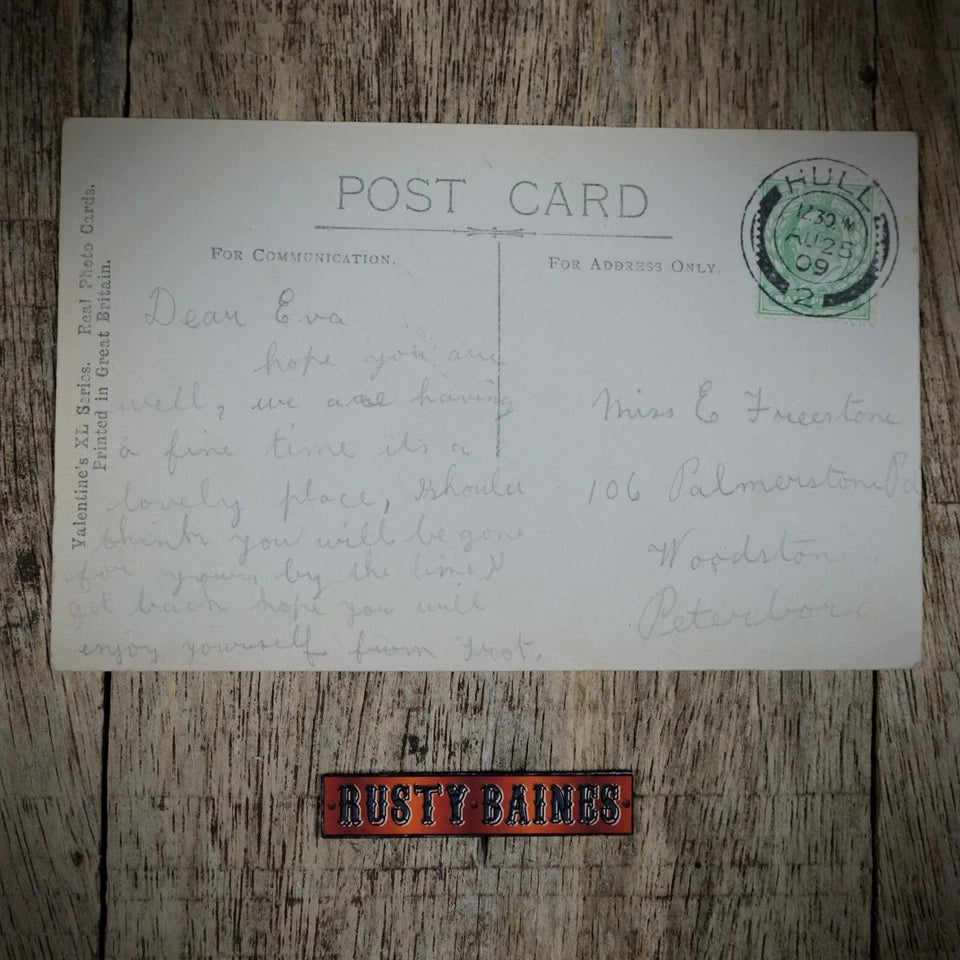 POST CARD
FOR COMMUNICATION.
FOR ADDRESS ONLY.
Valentine's XL Series. Real Photo Cards.
Printed in Great Britain.
HULL
12.30 PM
AU 25
09
2
Dear Eva
hope you are
well, we are having
a fine time its a
lovely place, I should
think you will be gone
for yours by the time I
get back hope you will
enjoy yourself from Trot.
Miss E Freestone
106 Palmerstone Rd
Woodston
Peterboro
RUSTY BAINES